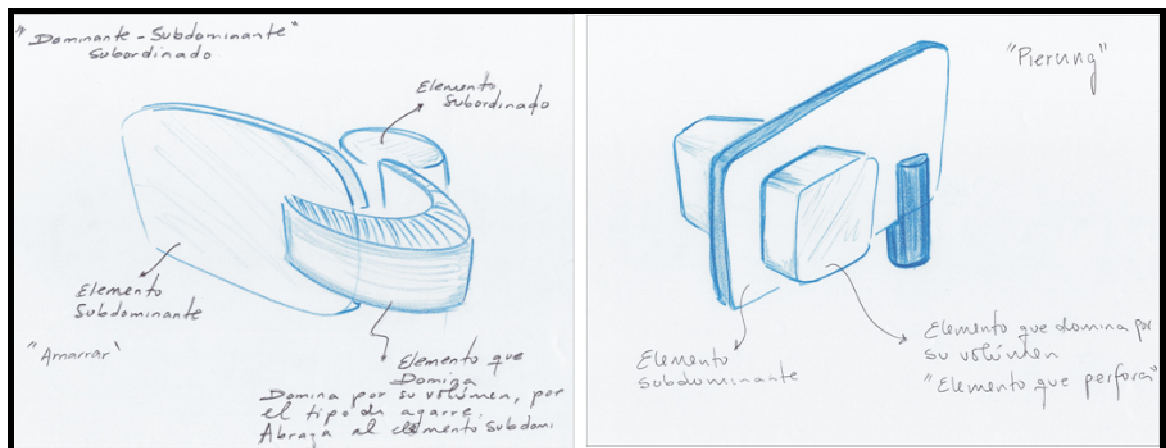 "Dominante - Subdominante"
Subordinado
Elemento
Subordinado
Elemento
Subdominante
"Amarrar"
Elemento que
Domina
Domina por su volúmen, por
el tipo de agarre.
Abraza al elemento Subdomi.
"Pierung"
Elemento
Subdominante
Elemento que domina por
su volúmen
"Elemento que perfora"